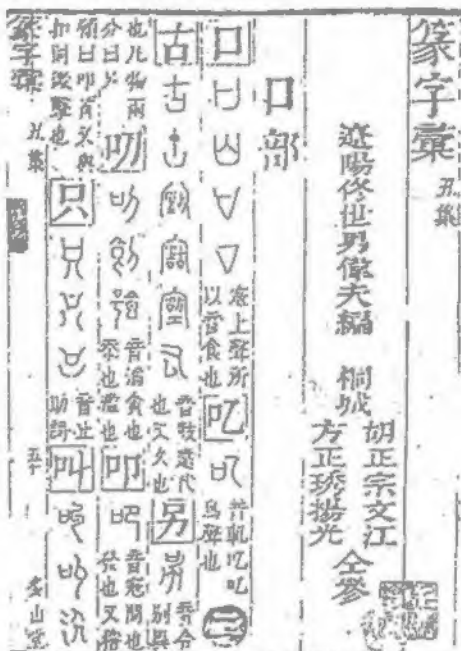 篆字彙 丑集
遼陽佟世男偉夫編 桐城
胡正宗文江
方正 揚光
仝參
口部
口 上聲所
以言食也
𠮙 音軋
鳥聲也
古 音鼓遠代
也又久也
另 音令
別異
也凡物兩
分曰另
叨 音滔貪也
忝也濫也
叩 音寇問也
發也又稽
顙曰叩首又與
扣同後擊也
只 音止
助詞
叫
篆字彙 丑集 五十 多山堂